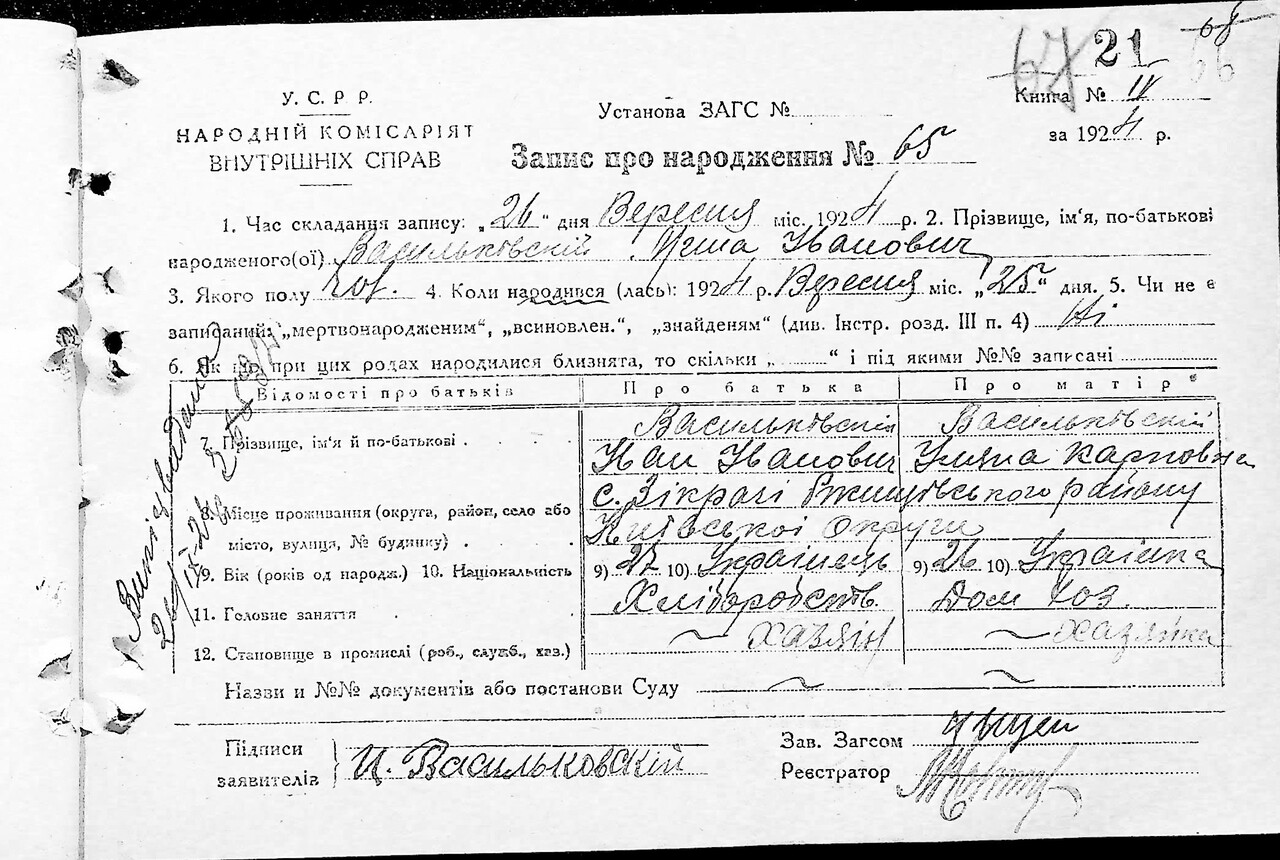 68
67 21 66
У. С. Р. Р.
НАРОДНІЙ КОМІСАРІЯТ
ВНУТРІШНІХ СПРАВ
Установа ЗАГС №
Книга № IV
за 1924 р.
Запис про народження № 65
1. Час складання запису: „26“ дня Вересня міс. 1924 р. 2. Прізвище, ім'я, по-батькові
народженого(ої) Васильковскій Іванович
3. Якого полу чол. 4. Коли народився (лась): 1924 р. Вересня міс. „25“ дня. 5. Чи не є
записаний: „мертвонародженим“, „всиновлен.“, „знайденям“ (див. Інстр. розд. III п. 4) Ні
6. Як що при цих родах народилися близнята, то скільки „ “ і під якими №№ записані
Відомості про батьків Про батька Про матір
7. Прізвище, ім'я й по-батькові Васильковскій Васильковскій
Іван Іванович Уляна Карповна
8. Місце проживання (округа, район, село або
місто, вулиця, № будинку) с. Зікрачі Ржищівського району
Київської Округи
9. Вік (років од народж.) 10. Національність 9) 27 10) Українець 9) 26 10) Українка
11. Головне заняття Хліборобств. Дом хоз.
12. Становище в промислі (роб., служб., хаз.) ~ хазяїн ~ хазяйка
Назви и №№ документів або постанови Суду ~ ~
Підписи
заявителів И. Васильковскій
Зав. Загсом
Реєстратор